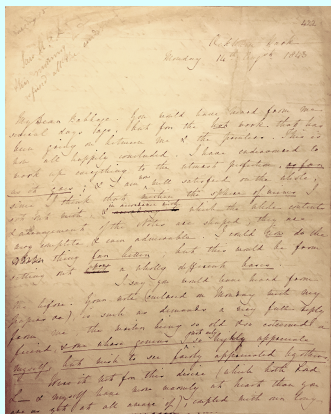 422
Monday 14th August 1843
My Dear Babbage. You would have heard from me
several days ago, but for the hot work that has
been going on between me & the printers. This is
now all happily concluded. I have endeavoured to
work up everything to the utmost perfection, as far
as it goes; & I am well satisfied on the whole,
since I think that within the sphere of views I
set out with, & in accordance with which the whole contents
& arrangement of the Notes are shaped, they are
very complete, & even admirable. I could now do the
thing far better; but this would be from
setting out upon a wholly different basis.
I say you would have heard from
me before. Your note enclosed on Monday with my
papers &c, is such as demands a very full reply
from me, the writer being so old & so esteemed a
friend, & one whose genius I not only so highly appreciate
myself, but wish to see fairly appreciated by others.
Were it not for this desire (which both Lord
L— & myself have more warmly at heart than you
are as yet at all aware of), coupled with our long